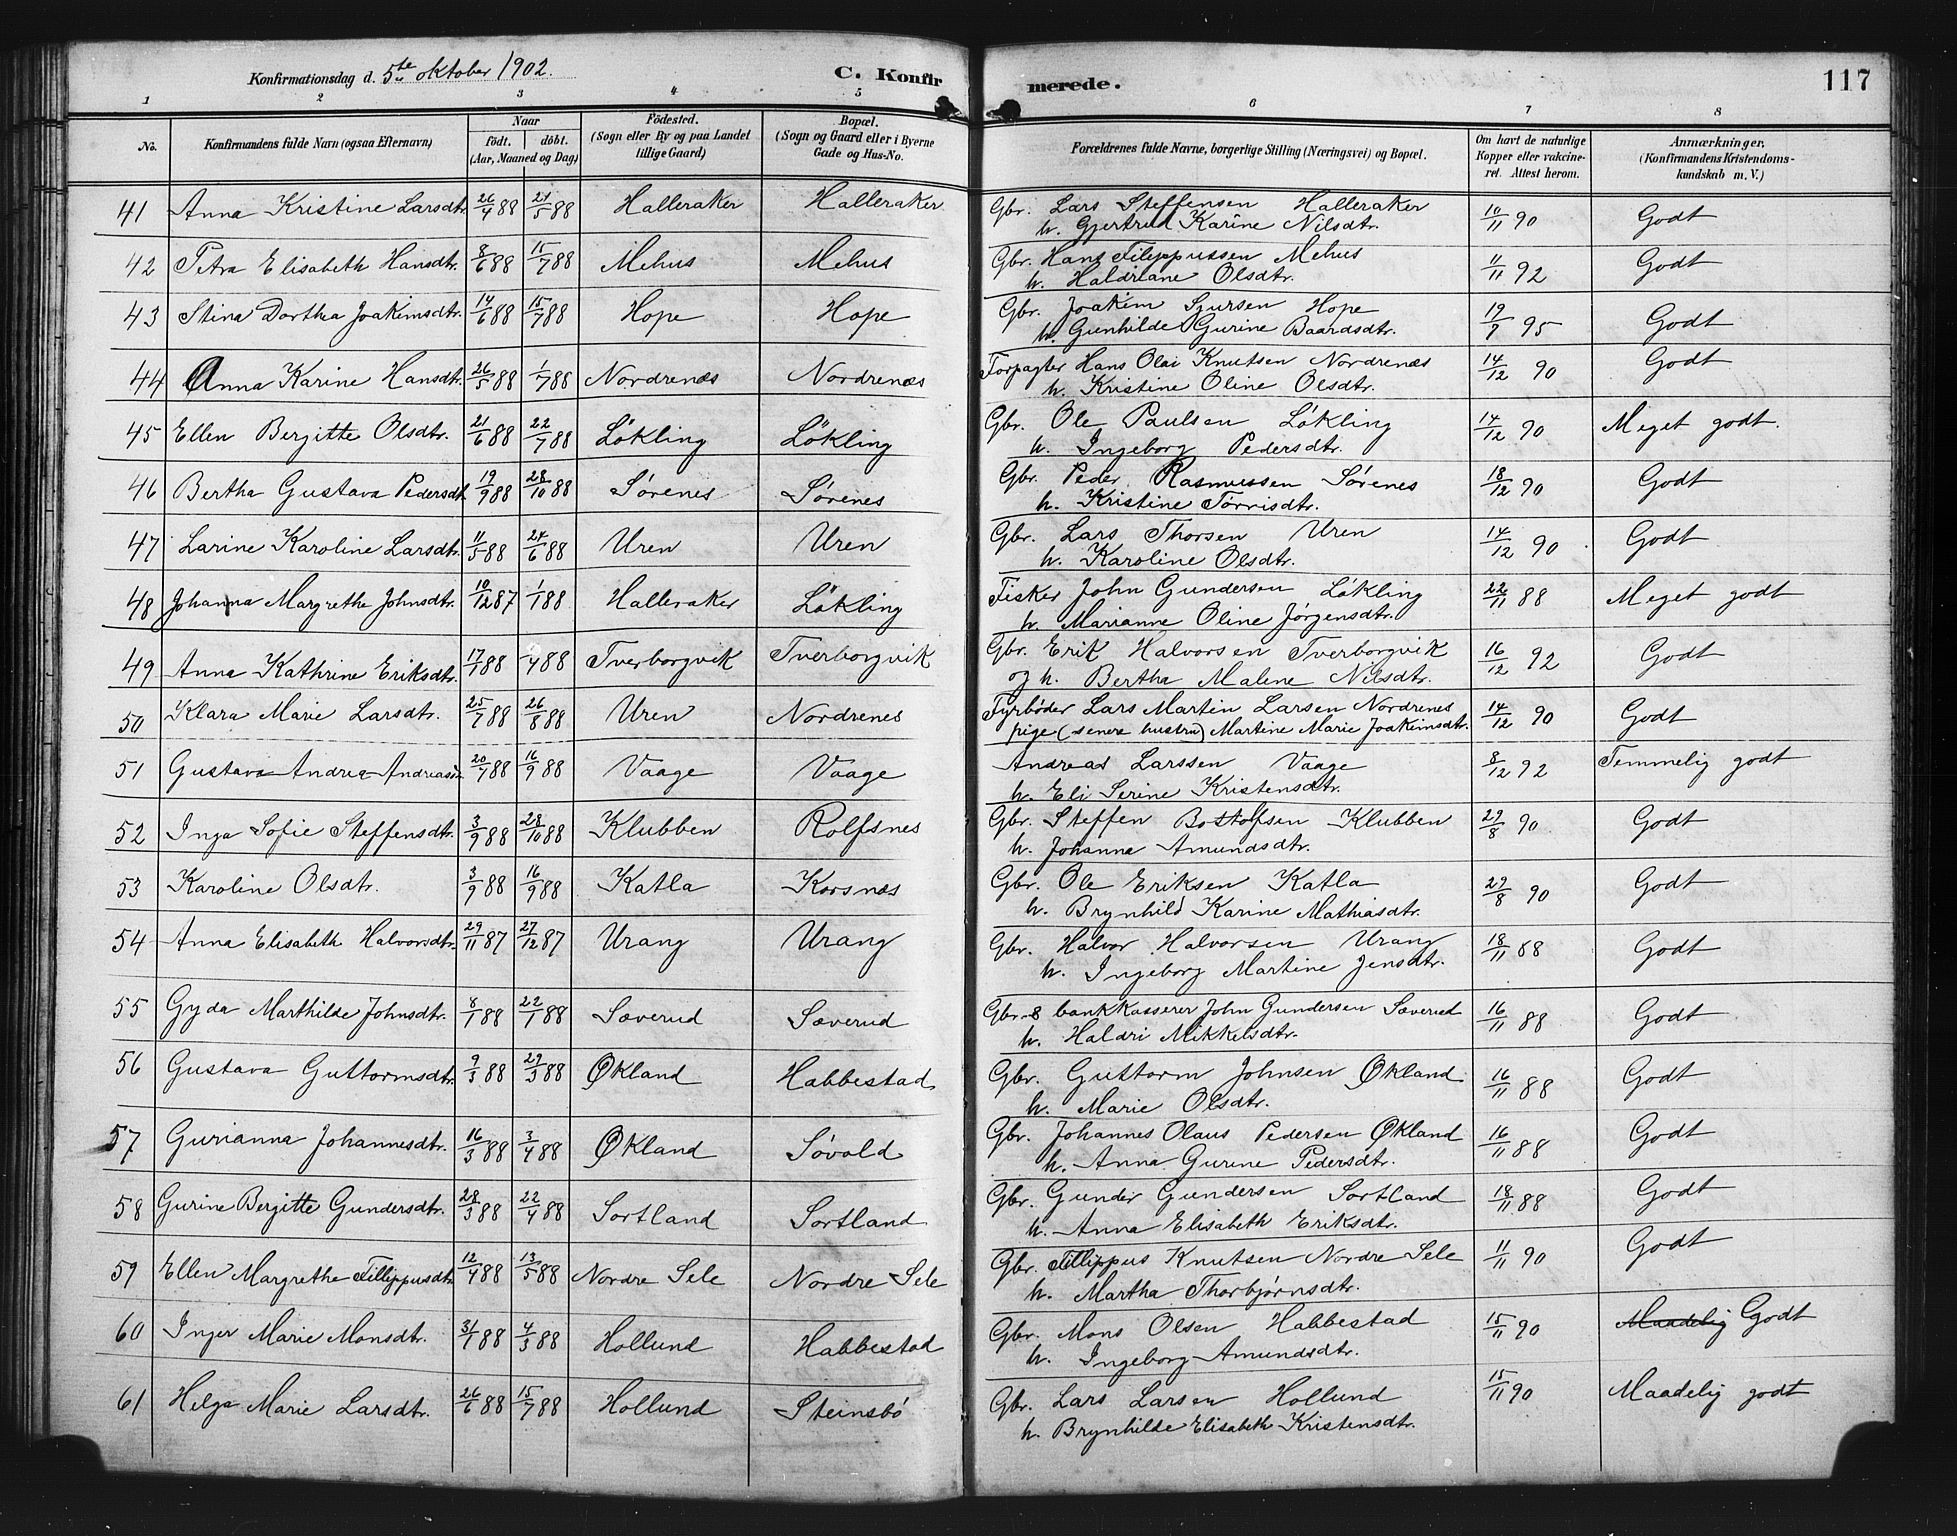 Konfirmationsdag d. 5te oktober 1902. C. Konfir merede. 117
1 2 3 4 5 6 7 8
No. Konfirmandens fulde Navn (ogsaa Efternavn) Naar födt. döbt. (Aar, Maaned og Dag) Födested. (Sogn eller By og paa Landet tillige Gaard) Bopæl. (Sogn og Gaard eller i Byerne Gade og Hus-No. Forældrenes fulde Navne, borgerlige Stilling (Næringsvei) og Bopæl. Om havt de naturlige Kopper eller vakcineret. Attest herom. Anmærkninger. (Konfirmandens Kristendomskundskab m. V.)
41 Anna Kristine Larsdtr. 26/4 88 21/5 88 Halleraker Halleraker Gbr. Lars Steffensen Halleraker 10/11 90 Godt
h. Gjertrud Karine Nilsdtr.
42 Petra Elisabeth Hansdtr. 8/6 88 15/7 88 Mehus Mehus Gbr. Hans Filippussen Mehus 11/11 92 Godt
h. Haldriane Olsdtr.
43 Stina Dorthea Joakimsdtr. 14/6 88 15/7 88 Hope Hope Gbr. Joakim Sjursen Hope 19/7 95 Godt
h. Gunhilde Gurine Baardsdtr.
44 Anna Karine Hansdtr. 26/5 88 1/7 88 Nordrenæs Nordrenæs Forpagter Hans Olai Knutsen Nordrenæs 14/12 90 Godt
h. Kristine Oline Olsdtr.
45 Ellen Bergitte Olsdtr. 21/6 88 22/7 88 Lökling Lökling Gbr. Ole Paulsen Lökling 14/12 90 Meget godt.
h. Ingeborg Pedersdtr.
46 Bertha Gustava Pedersdt. 19/9 88 28/10 88 Sørenes Sørenes Gbr. Peder Rasmussen Sørenes 18/12 90 Godt
h. Kristine Törrisdtr.
47 Larine Karoline Larsdtr. 11/5 88 24/6 88 Uren Uren Gbr. Lars Thorsen Uren 14/12 90 Godt
h. Karoline Olsdtr.
48 Johanna Margrethe Johnsdtr. 10/12 87 1/1 88 Halleraker Lökling Fisker John Gundersen Løkling 22/11 88 Meget godt
h. Marianne Oline Jørgensdtr.
49 Anna Kathrine Eriksdtr. 17/1 88 /4 88 Tverborgvik Tverborgvik Gbr. Erik Halvorsen Tverborgvik 16/12 92 Godt
og h. Bertha Malene Nilsdtr.
50 Klara Marie Larsdtr. 25/7 88 26/8 88 Uren Nordrenes Fyrbøder Lars Martin Larsen Nordrenes 14/12 90 Godt
pige (senere hustru) Martine Marie Joakimsdtr.
51 Gustava Andrea Andreasd. 20/7 88 16/9 88 Vaage Vaage Andreas Larssen Vaage 8/12 92 Temmelig godt
h. Eli Serine Kristensdtr.
52 Inga Sofie Steffensdtr. 3/9 88 28/10 88 Klubben Rolfsnes Gbr. Steffen Bottolfsen Klubben 29/8 90 Godt
h. Johanna Amundsdtr.
53 Karoline Olsdtr. 3/9 88 16/9 88 Katla Korsnæs Gbr. Ole Eriksen Katla 29/8 90 Godt
h. Brynhild Karine Mathiasdtr.
54 Anna Elisabeth Halvorsdtr. 29/11 87 27/12 87 Urang Urang Gbr. Halvor Halvorsen Urang 18/11 88 Godt
h. Ingeborg Martine Jensdtr.
55 Gyda Marthilde Johnsdtr. 8/1 88 22/1 88 Sæverud Sæverud Gbr. & bankkasserer John Gundersen Sæverud 16/11 88 Godt
h. Haldri Mikkelsdtr.
56 Gustava Guttormsdtr. 9/3 88 29/3 88 Økland Habbestad Gbr. Guttorm Johnsen Økland 16/11 88 Godt
h. Marie Olsdtr.
57 Gurianna Johannesdtr. 16/3 88 3/4 88 Økland Søvold Gbr. Johannes Olaus Pedersen Økland 16/11 88 Godt
h. Anna Gurine Pedersdtr.
58 Gurine Bergitte Gundersdtr. 28/3 88 22/4 88 Sortland Sortland Gbr. Gunder Gundersen Sortland 18/11 88 Godt
h. Anna Elisabeth Eriksdtr.
59 Ellen Margrethe Fillippusdtr. 12/4 88 13/5 88 Nordre Sele Nordre Sele Gbr. Fillippus Knutsen Nordre Sele 11/11 90 Godt
h. Martha Thorbjørnsdtr.
60 Inger Marie Monsdtr. 31/1 88 4/3 88 Hollund Habbestad Gbr. Mons Olsen Habbestad 15/11 90 Maadelig Godt
h. Ingeborg Amundsdtr.
61 Helga Marie Larsdtr. 26/6 88 15/7 88 Hollund Steinsbö Gbr. Lars Larsen Hollund 15/11 90 Maadelig godt
h. Brynhilde Elisabeth Kristensdtr.